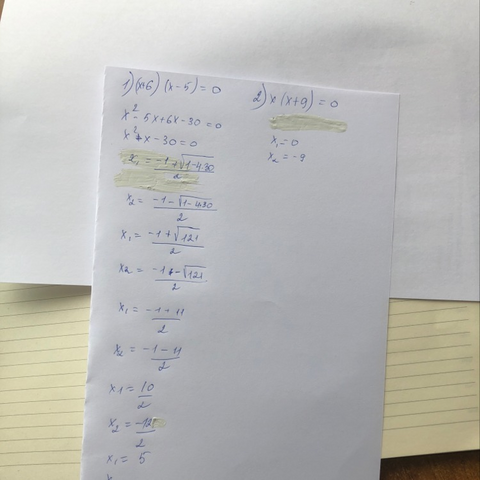 1) (x+6) (x-5) = 0
x² - 5x + 6x - 30 = 0
x² + x - 30 = 0
x₁ = (-1 + √(1-4·30))/2
x₂ = (-1 - √(1-4·30))/2
x₁ = (-1 + √121)/2
x₂ = (-1 - √121)/2
x₁ = (-1 + 11)/2
x₂ = (-1 - 11)/2
x1 = 10/2
x₂ = -12/2
x₁ = 5
2) x (x+9) = 0
x₁ = 0
x₂ = -9